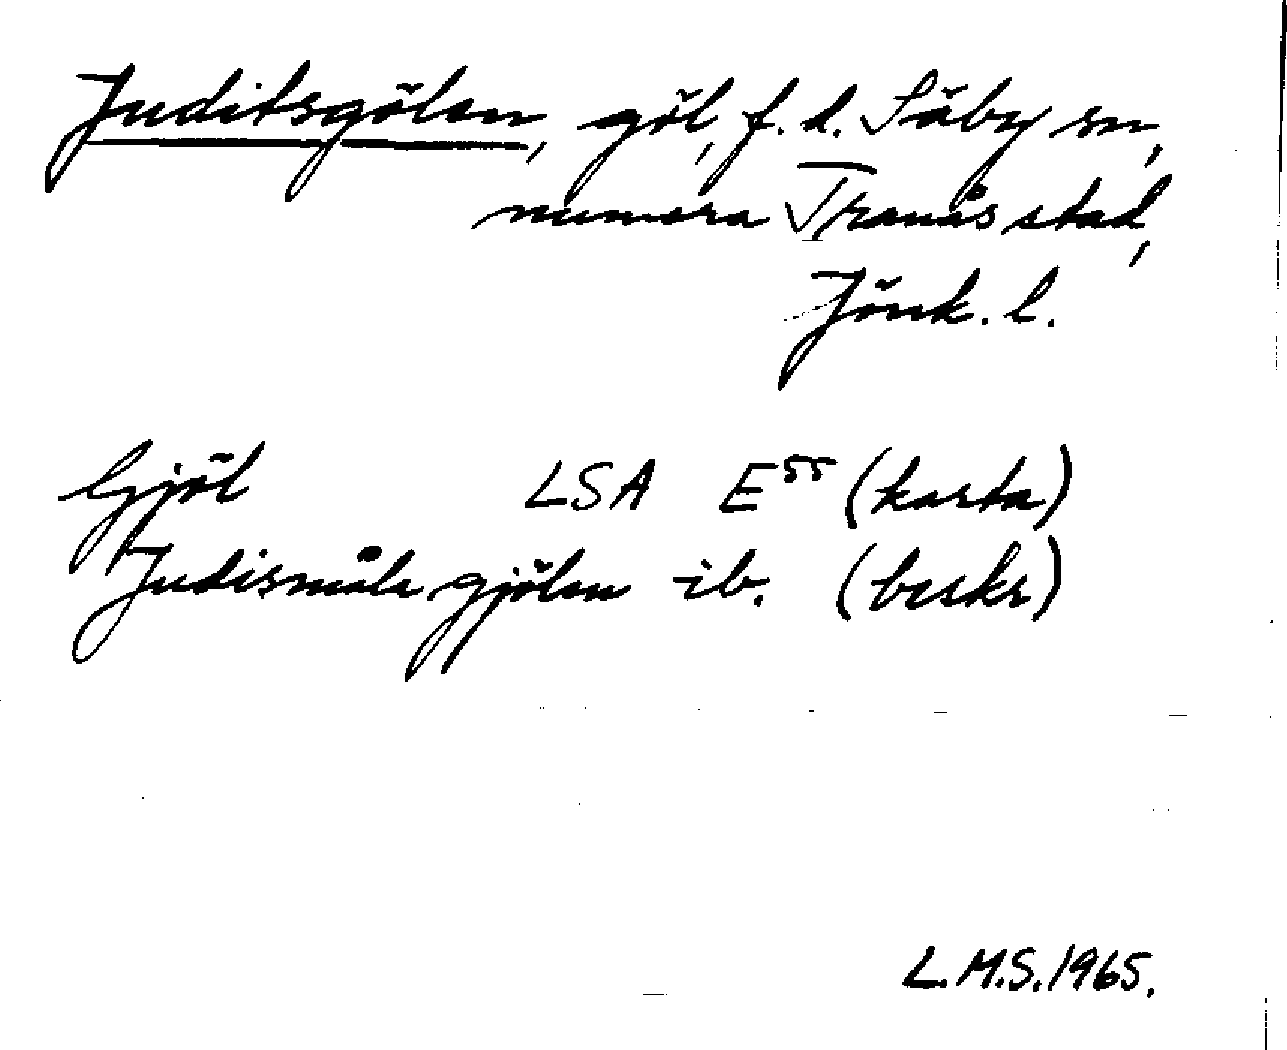 Juditsgölen, göl, f.d. Säby sn,
numera Tranås stad,
Jönk. l.
Gjöl LSA E55 (karta)
Judismåla gjölen ib. (beskr)
L.M.S. 1965.